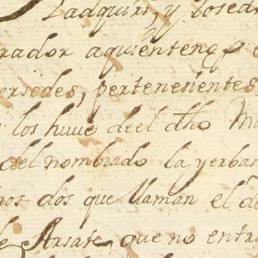 Ladquiri, y los ed
rador aquien tengo
ersedes, pertenesientes
los huuê de el dho M
del nombrado la yerbas
ros dos que llaman el d
de Arsate que no entra